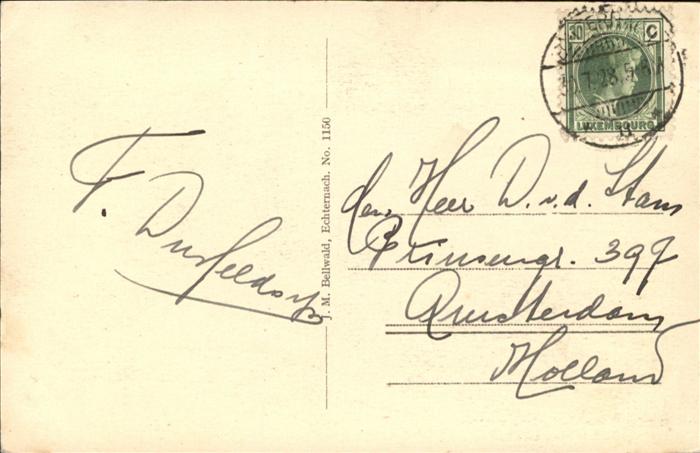 30 C
7.28.5
LUXEMBOURG
F.
J. M. Bellwald, Echternach. No. 1150
den Heer D. v. d. Stam
Prinsengr. 397
Amsterdam
Holland